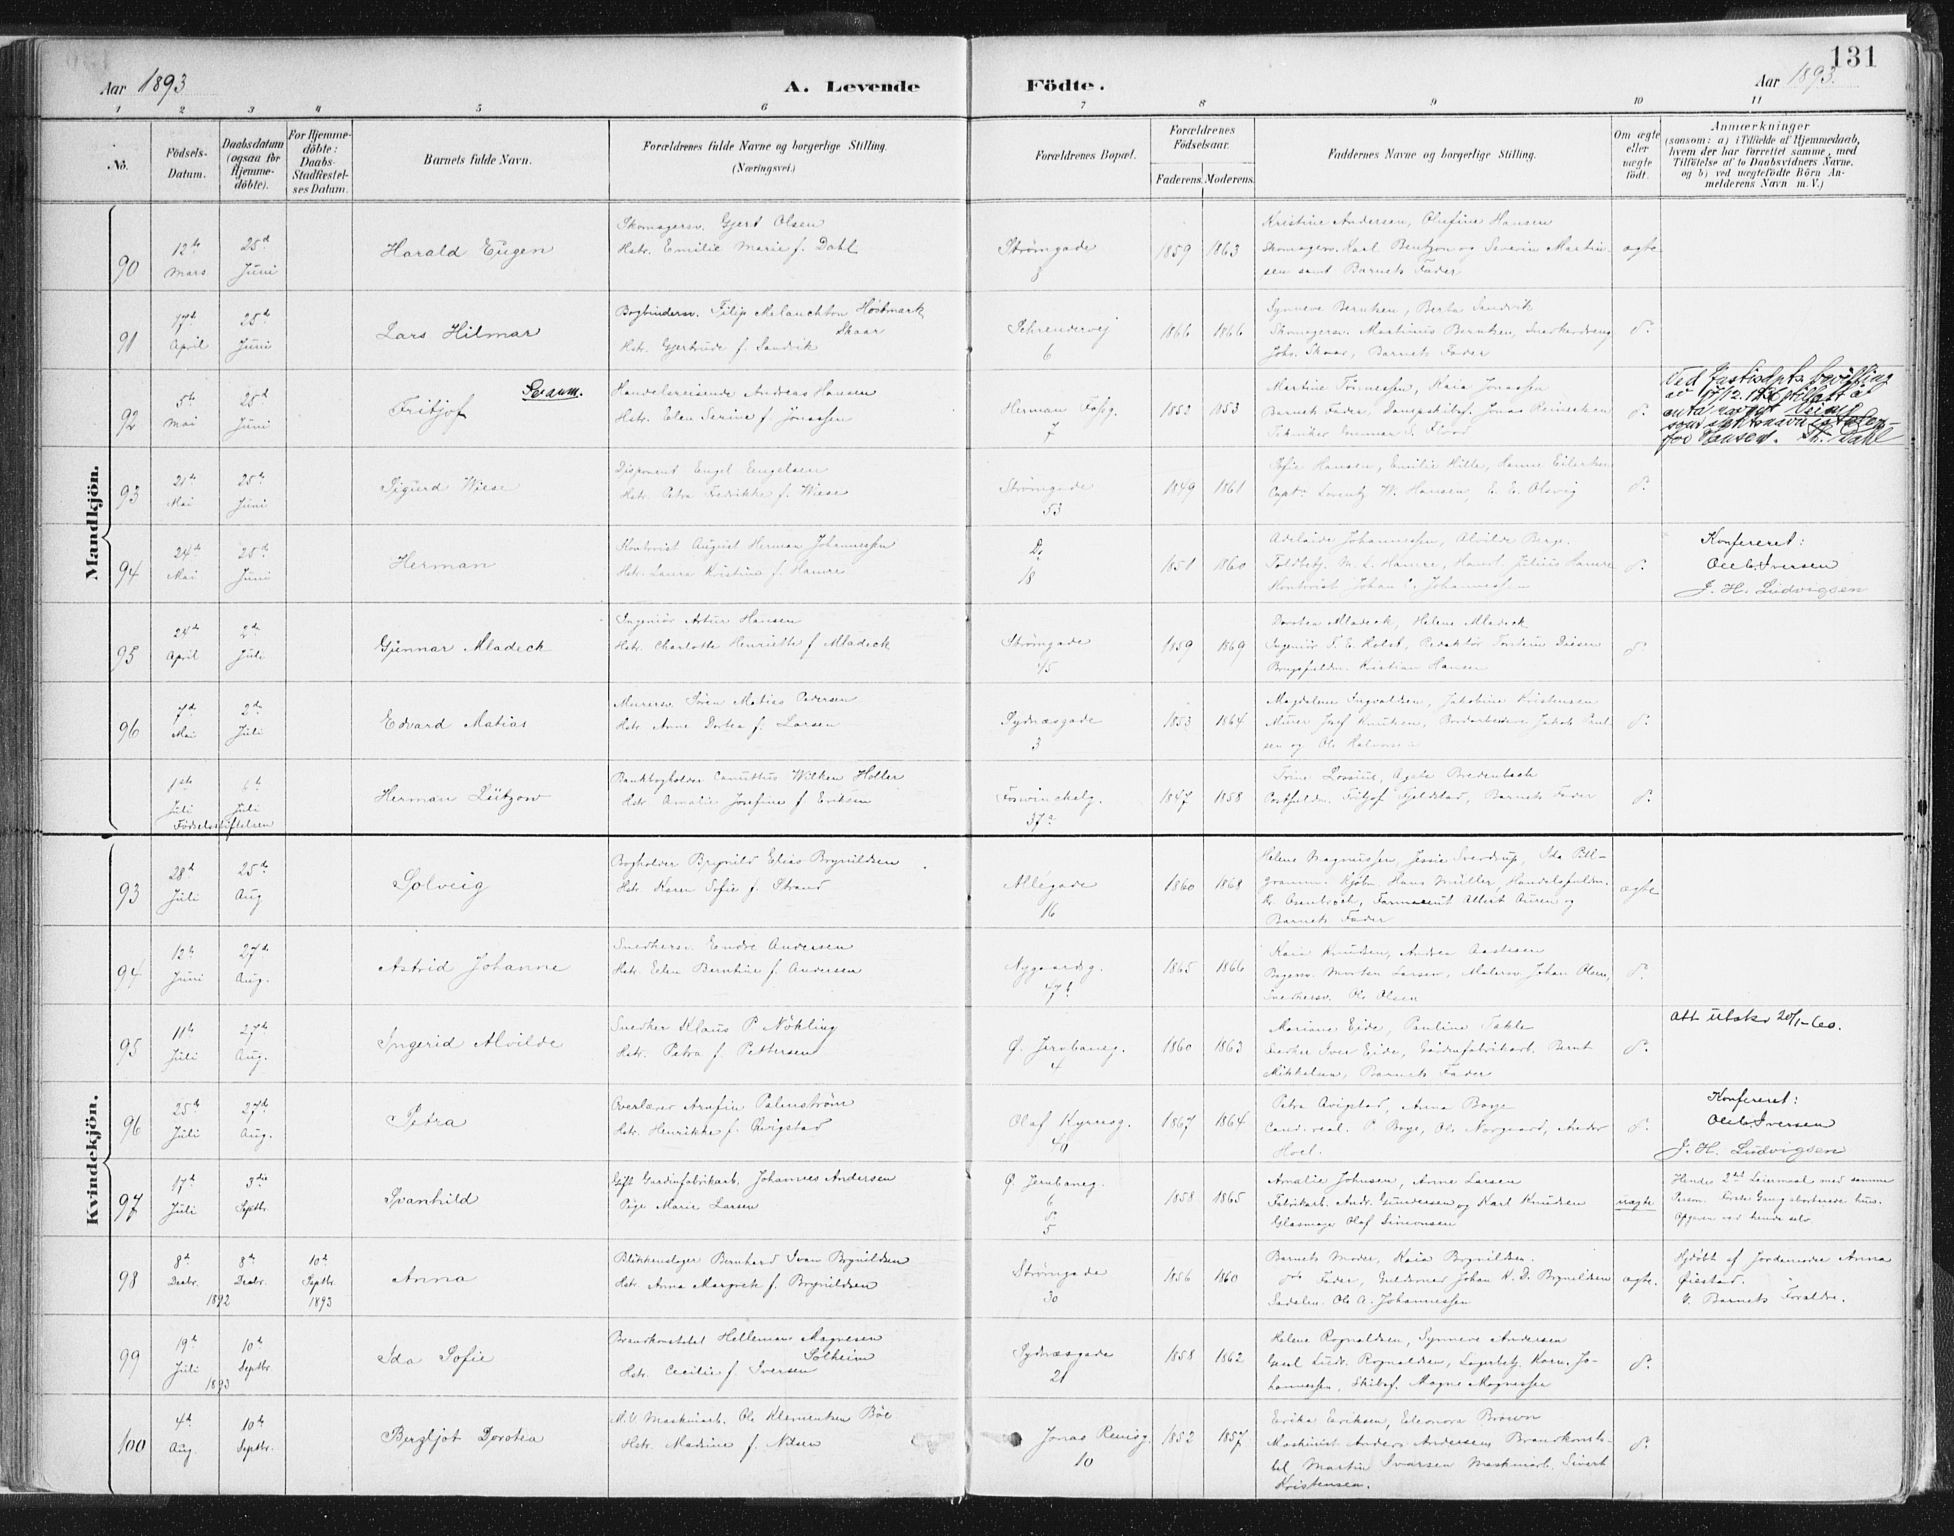 131
Aar 1893
A. Levende
Födte.
Aar 1893.
1 2 3 4 5 6 7 8 9 10 11
No.
Födsels-
Datum.
Daabsdatum
(ogsaa for
Hjemme-
döbte).
For Hjemme-
döbte:
Daabs-
Stadfæstel-
ses Datum.
Barnets fulde Navn.
Forældrenes fulde Navne og borgerlige Stilling.
(Næringsvei.)
Forældrenes Bopæl.
Forældrenes
Födselsaar.
Faderens. Moderens.
Faddernes Navne og borgerlige Stilling.
Om ægte
eller
uægte
födt.
Anmærkninger
(saasom: a) i Tilfælde af Hjemmedaab,
hvem der har forrettet samme, med
Tilföielse af to Daabsvidners Navne,
og b) ved uægtefödte Börn An-
melderens Navn m. V.)
Mandkjön.
90
12te Mars
25de Juni
Harald Eugen
Skomagersv. Gjert Olsen
Hstr. Emilie Marie f. Dahl
Strömgade
8
1859 1863
Kristine Andersen, Olufine Hansen
Skomagersv. Karl Bentzon og Severin Martin-
sen samt Barnets Fader
ægte
91
17de April
25de Juni
Lars Hilmar
Bogbindersv. Filip Melanchton Hövmark
Skaar
Hstr. Gjertrude f. Sandvik
6
1866 1866
Synneve Berntsen, Berta Sandvik
Skomagersv. Martinus Berntsen,
Johs. Skaar, Barnets Fader
do
92
5te Mai
25de Juni
Fritjof
Svaum.
Handelsreisende Andreas Hansen
Hstr. Elen Serine f. Jonassen
Herman Fossg.
7
1852 1853
Martine Tönnessen, Kaia Jonassen
Barnets Fader, Dampskibsf. Jonas Reinertsen
do
Ved Justisdpts bevilling
som slektsnavn istden-
for Hansen. Th. Dahl
93
21de Mai
25de Juni
Sigurd Wiese
Disponent Engel Engelsen
Hstr. Petra Fredrikke f. Wiese
Strömgade
53
1849 1861
Sofie Hansen, Emilie Hille, Hanne Eilertsen
Capt. Lorentz W. Hansen, E. E. Olsvig
do
94
24de Mai
25de Juni
Herman
Kontorist August Herman Johannessen
Hstr. Laura Kristine f. Hamre
Do
18
1851 1860
Adelaide Johannessen, Alvilde Berge.
Toldbetj. M. L. Hamre, Hans Julius Hamre
Kontorist Johan C. Johannessen
do
Konfereret:
Ole C. Iversen
J. H. Ludvigsen
95
24de April
2de Juli
Gunnar Mladeck
Ingeniör Artur Hansen
Hstr. Charlotte Henriette f Mladeck
Strömgade
45
1859 1869
Dorotea Mladeck, Helene Mladeck
Ingeniör F. E. Holst, Redaktör Torstein Diesen
Brugsfuldm. Kristian Hansen
do
96
7de Mai
2de Juli
Edvard Matias
Murersv. Sören Matias Pedersen
Hstr. Anne Dortea f. Larsen
Sydnæsgade
3
1853 1864
Magdalene Ingvaldsen, Jakobine Kristensen
Murer Josef Knutsen, Bordarbeider Jakob Paul-
sen og Ole Halvorsen
do
1ste Juli
6te Juli
Födselsstiftelsen
Herman Lützow
Bankbogholder Canuttus Wilken Holler
Hstr. Amalie Josefine f Eriksen
Fosvinckelg.
37a
1847 1858
Trine Lossius, Agate Bredenbech
Postfuldm. Fritjof Gjeldstad, Barnets Fader
do
Kvindekjön.
93
28de Juli
25de Aug
Solveig
Bogholder Brynild Elias Brynildsen
Hstr Karen Sofie f. Strand
Allégade
16
1860 1868
Helene Magnussen, Jessie Sverdrup, Ida Pill-
Gramm. Kjöbm Hans Müller, Handelsfuldm.
Farmaceut Albert Auren og
Barnets Fader
ægte
94
13de Juni
27de Aug.
Astrid Johanne
Snedkersv. Endre Andersen
Hstr. Elen Berntine f. Andersen
Nygaardsg.
47b
1865 1866
Karie Knudsen, Andrea Aastesen
Bagersv. Morten Larsen, Malersv. Johan Olsen,
Snedkersv. Ole Olsen
do
95
11te Juli
27de Aug.
Ingerid Alvilde
Snedker Klaus P Nökling
Hstr. Petra f. Pettersen
Ø. Jernbaneg.
4
1860 1863
Mariane Eide, Pauline Takle
Snedker Iver Eide, Gardinfabrikarb. Bernt
Mikkelsen, Barnets Fader
do
Att utskr 20/1-60.
96
25de Juli
27de Aug.
Petra
Overlærer Arnfin Palmström
Hstr. Henrikke f. Qvigstad
Olaf Kyrresg.
40
1867 1864
Petra Qvigstad, Anna Boye
Cand. real. P Boye, Ole Norgaard, Ander
Hoel.
do
Konfereret:
Ole C. Iversen
J. H. Ludvigsen
97
17de Juli
3die Septbr.
Svanhild
Gift Gardinfabrikarb. Johannes Andersen
Pige Marie Larsen
Ø. Jernbaneg.
6
do
5
1858 1865
Amalie Johnsen, Anne Larsen
Fabrikarb. Andr. Gundersen og Karl Knudsen
Glasmager Olaf Simonsen
uægte
Hendes 2det Leiermaal med samme
Person. Förste Gang
Opgaven ved hende selv
98
8de Decbr.
8de Decbr.
1892
10de Septbr. 1893
Anna
Blikkenslager Bernhard Ivan Brynildsen
Hstr. Anna Margrete f. Brynildsen
Strömgade
30
1856 1860
Barnets Moder, Kaia Brynildsen.
Fader, Guldsmed Johan K. D. Brynildsen
Sadelm. Ole A. Johannessen
ægte.
Hjdöbt af Jordemoder Anna
Öiestad.
V. Barnets Foraldre.
99
19de Juli
1893
10de Septbr.
Ida Sofie
Brandkonstabel Helleman Magnesen
Solheim
Hstr. Cecilie f. Iversen
Sydnæsgade
21
1858 1862
Helene Rognaldsen, Synneve Andersen
Gsel Ludv. Rognaldsen, Lagerbetj. Korn. Jo-
hannessen, Skibsf. Magne Magnessen
do
100
4de Aug.
10de Septbr.
Bergljot Dorotea
M. V. Maskinarb. Ole Klementsen Böe
Hstr. Madsine f. Nilsen
Jonas Reinsg.
10
1852 1857
Erika Eriksen, Eleonora Brown
Maskinist Anders Andersen, Brandkonsta-
bel Martin Ivarsen Maskinarb. Sivert
Kristensen.
do